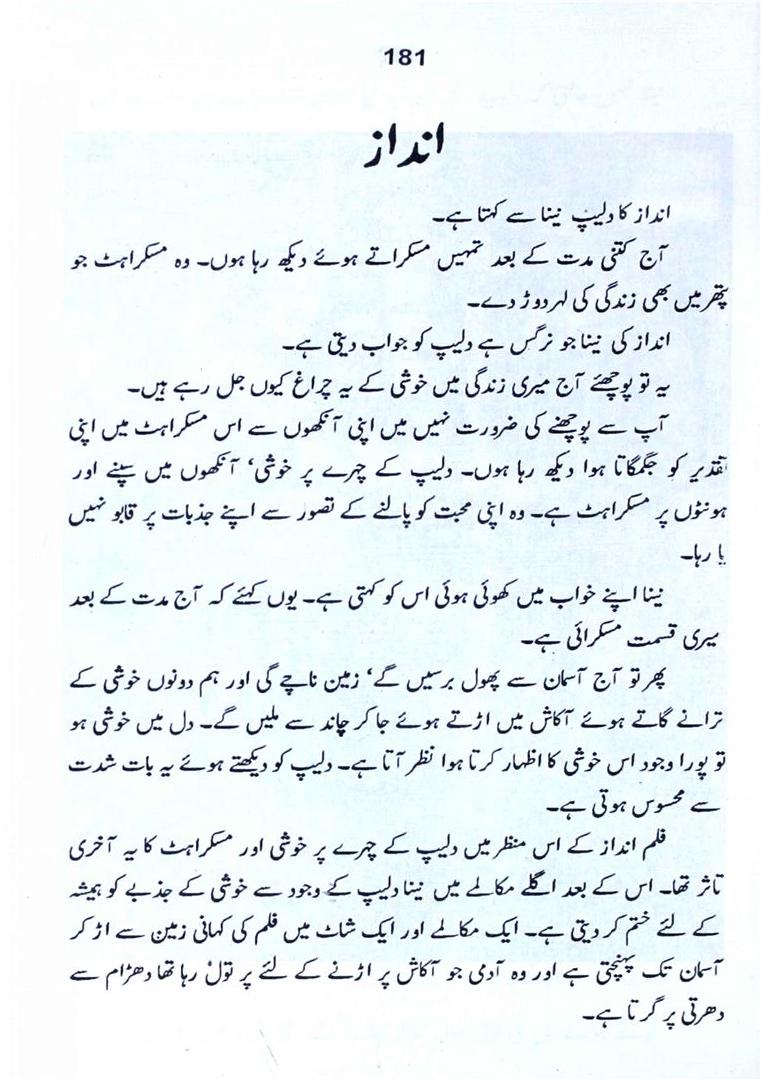 181
انداز
انداز کا دلیپ نینا سے کہتا ہے۔
آج کتنی مدت کے بعد تمہیں مسکراتے ہوئے دیکھ رہا ہوں۔ وہ مسکراہٹ جو
پتھر میں بھی زندگی کی لہر دوڑ دے۔
انداز کی نینا جو نرگس ہے دلیپ کو جواب دیتی ہے۔
یہ تو پوچھئے آج میری زندگی میں خوشی کے یہ چراغ کیوں جل رہے ہیں۔
آپ سے پوچھنے کی ضرورت نہیں میں اپنی آنکھوں سے اس مسکراہٹ میں اپنی
تقدیر کو جگمگاتا ہوا دیکھ رہا ہوں۔ دلیپ کے چہرے پر خوشی‘ آنکھوں میں سپنے اور
ہونٹوں پر مسکراہٹ ہے۔ وہ اپنی محبت کو پالنے کے تصور سے اپنے جذبات پر قابو نہیں
پا رہا۔
نینا اپنے خواب میں کھوئی ہوئی اس کو کہتی ہے۔ یوں کہئے کہ آج مدت کے بعد
میری قسمت مسکرائی ہے۔
پھر تو آج آسمان سے پھول برسیں گے‘ زمین ناچے گی اور ہم دونوں خوشی کے
ترانے گاتے ہوئے آکاش میں اڑتے ہوئے جا کر چاند سے ملیں گے۔ دل میں خوشی ہو
تو پورا وجود اس خوشی کا اظہار کرتا ہوا نظر آتا ہے۔ دلیپ کو دیکھتے ہوئے یہ بات شدت
سے محسوس ہوتی ہے۔
فلم انداز کے اس منظر میں دلیپ کے چہرے پر خوشی اور مسکراہٹ کا یہ آخری
تاثر تھا۔ اس کے بعد اگلے مکالمے میں نینا دلیپ کے وجود سے خوشی کے جذبے کو ہمیشہ
کے لئے ختم کر دیتی ہے۔ ایک مکالمے اور ایک شاٹ میں فلم کی کہانی زمین سے اڑ کر
آسمان تک پہنچتی ہے اور وہ آدمی جو آکاش پر اڑنے کے لئے پر تول رہا تھا دھڑام سے
دھرتی پر گرتا ہے۔